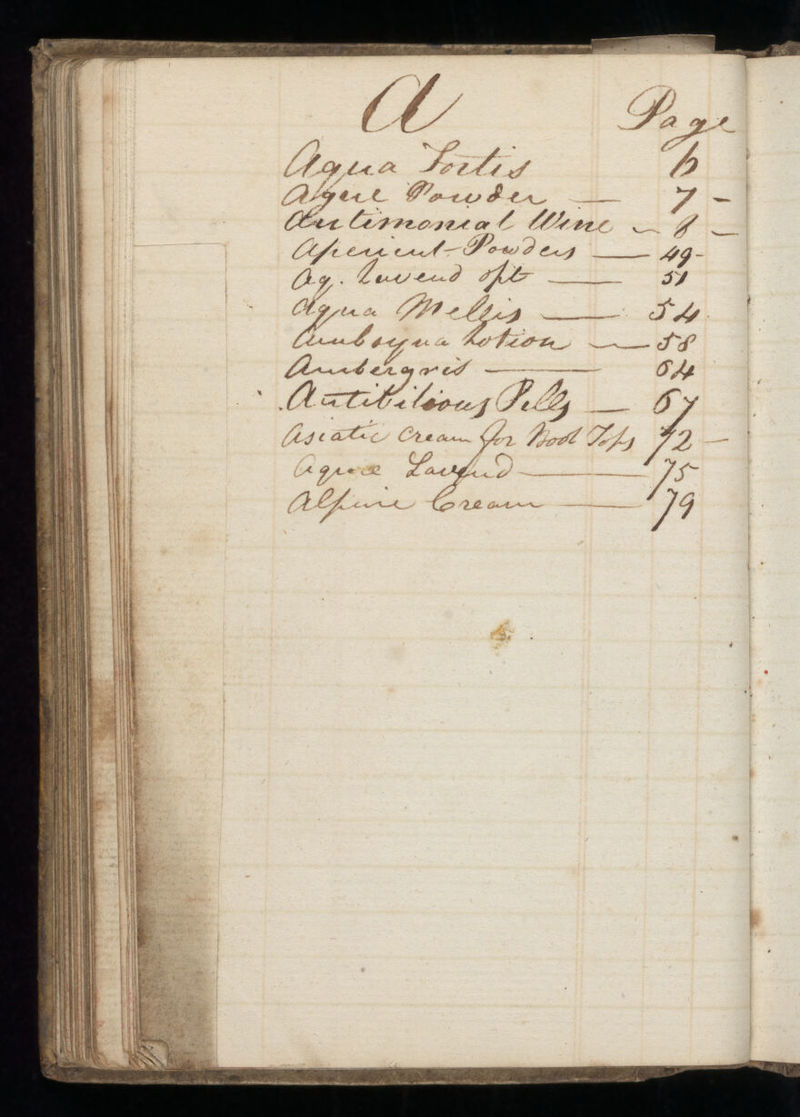 A Page
Aqua Fortis 6
Ague Powder — 7 –
Antimonial Wine – 8 –
Aperient Powders — 49 –
Aq. Lavend opt — 51
Aqua Mellis — 54
Amboyna Lotion — 58
Ambergris — 64
Antibilious Pills — 67
Asiatic Cream for Boot Tops 72 –
Aquae Lavend — 75
Alpine Cream — 79